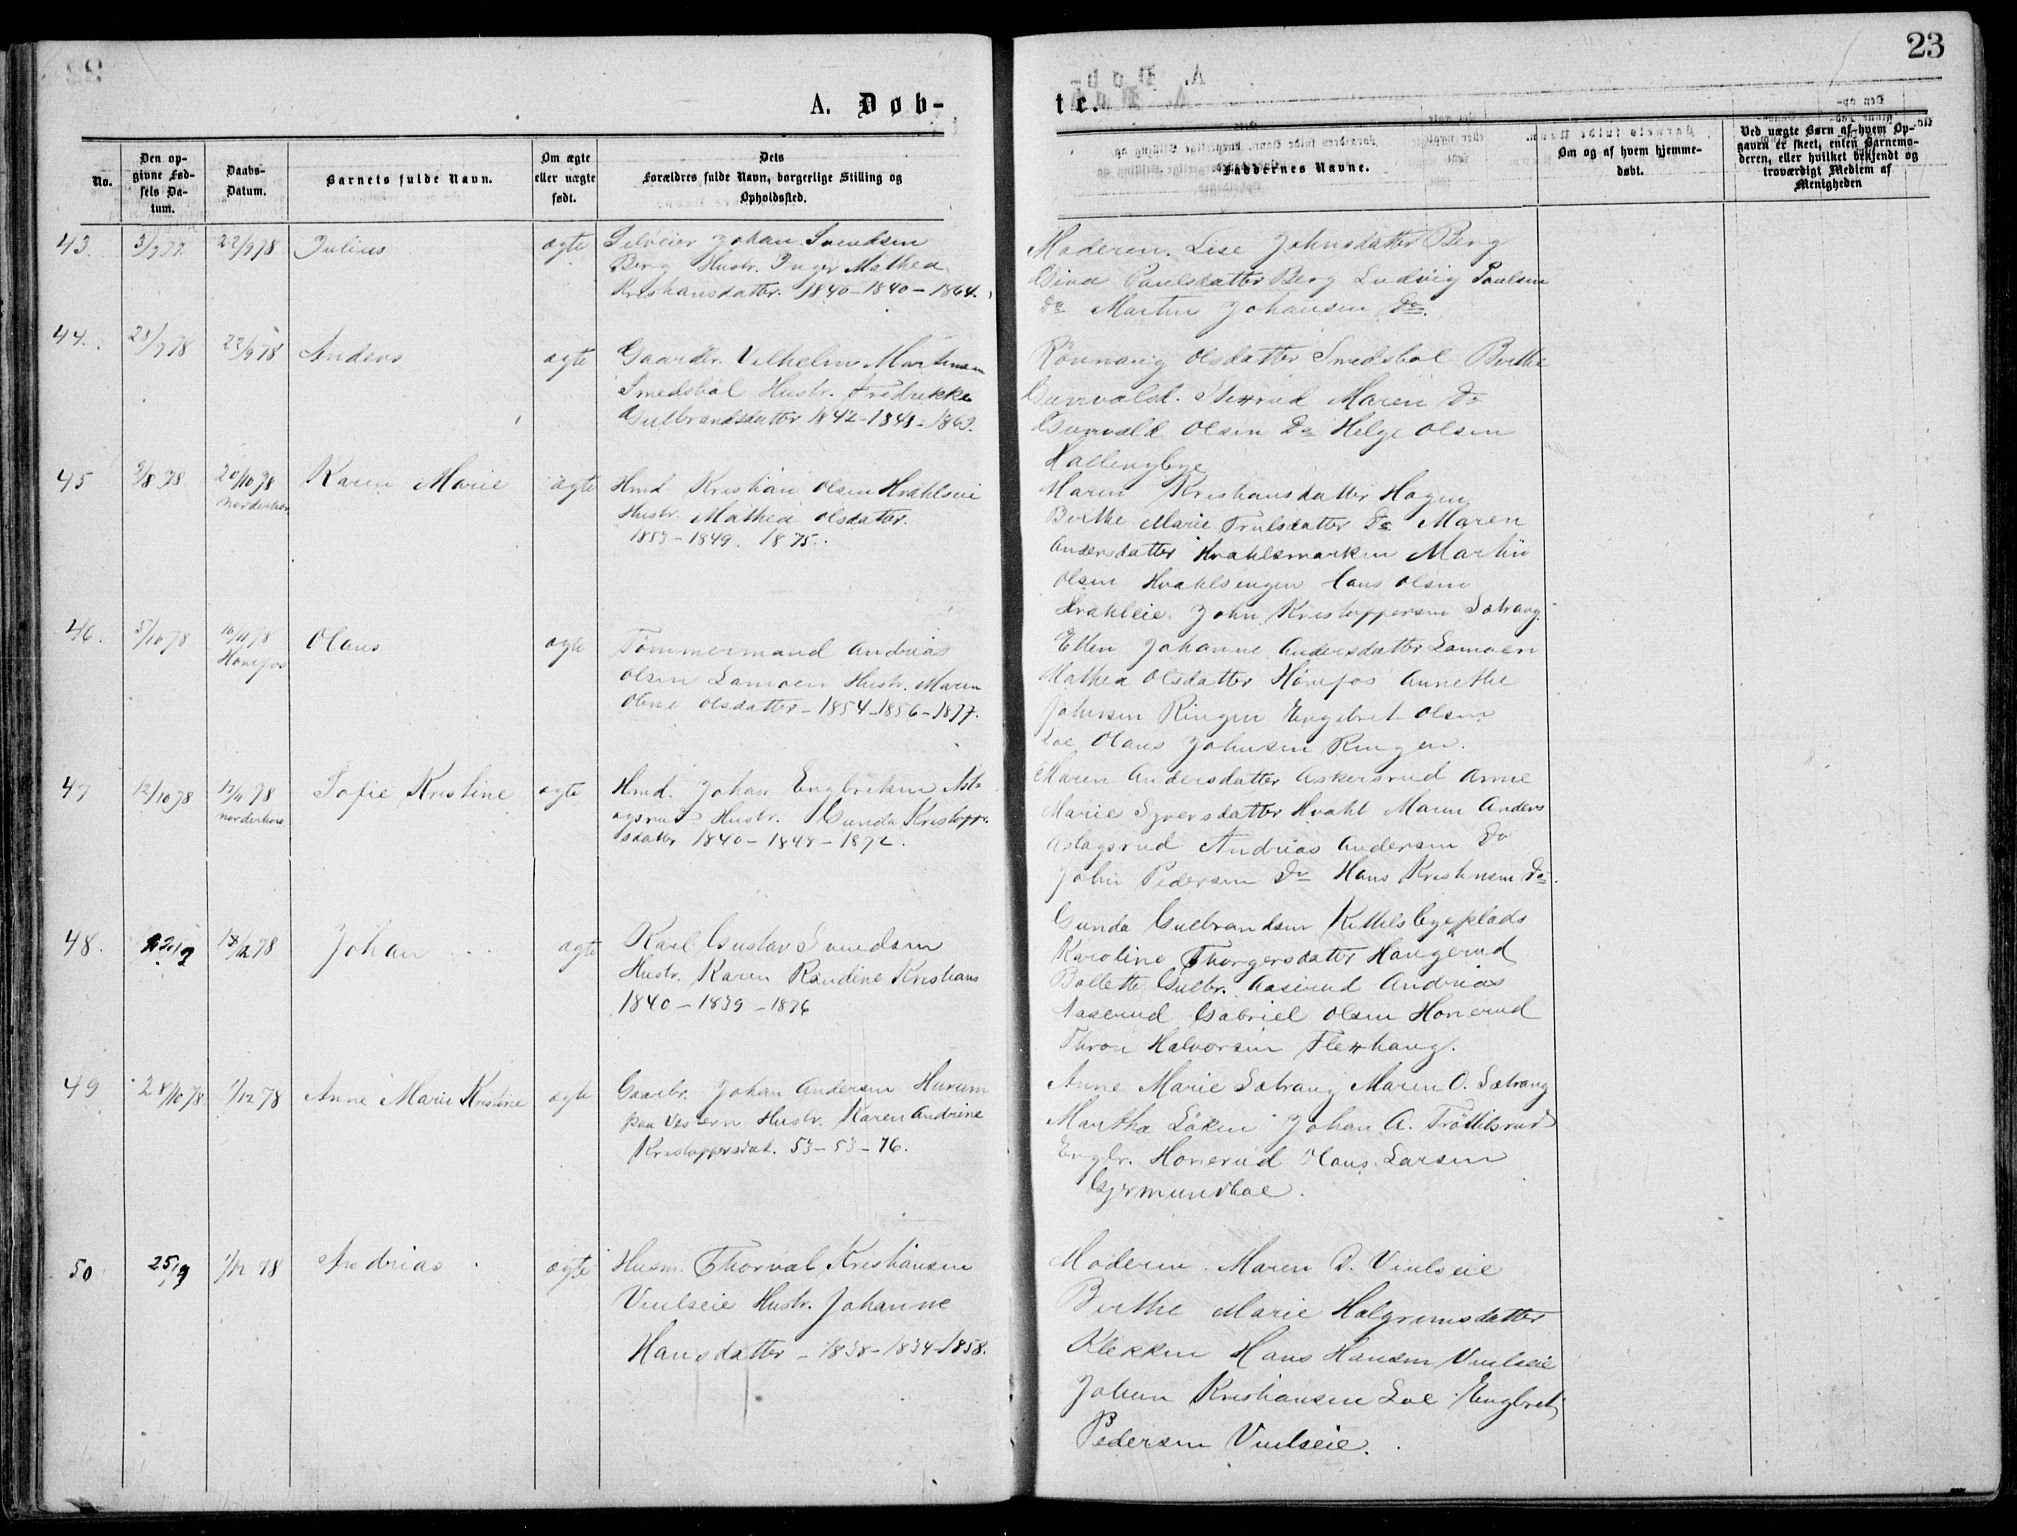 23
A. Døb-
te.
No.
Den op-
givne Fød-
sels Da-
tum.
Daabs-
Datum.
Barnets fulde Navn.
Om ægte
eller uægte
født.
Dets
Forældres fulde Navn, borgerlige Stilling og
Opholdssted.
Faddernes Navne.
Om og af hvem hjemme-
døbt.
Ved uægte Børn af hvem Op-
gaven er skeet, enten Barnemo-
deren, eller hvilket bekjendt og
troværdigt Medlem af
Menigheden
43.
22/9 78
Julius
ægte
Selveier Johan Svendsen
Berg Hustr. Inger Mathea
Kristiansdatter. 1840-1840-1864.
Moderen. Lise Johnsdatter Berg
Paulsdatter Berg Ludvig Paulsen
Do Martin Johansen Do.
44.
22/9 78
Anders
ægte
Gaardbr. Vilhelm Martinsen
Smedsbøl Hustr. Fredrikke
Gulbrandsdatter 1842-1848-1869.
Rønnaug Olsdatter Smedsbøl Berthe
Maren Do
Olsen Do Helge Olsen
Hallingbye
45
3/8 78
20/10 78
Norderhov
Karen Marie
ægte
Hmd Kristian Olsen Hvahlseie
Hustr. Mathea Olsdatter.
1853-1849. 1875.
Maren Kristiansdatter Hagen
Berthe Marie Trulsdatter Do Maren
Andersdatter Hvahlsmarken Martin
Olsen Hvahlsengen Hans Olsen
Hvahleie. John Kristoppersen Sætrang
46.
5/10 78
10/11 78
Hønefos
Olaus
ægte
Tømmermand Andrias
Olsen Lamoen Hustr. Maren
Oline Olsdatter - 1854-1856-1877.
Ellen Johanne Andersdatter Lamoen
Mathea Olsdatter Hønefos Annethe
Johnsen Ringen Engebret Olsen
Loe Olaus Johnsen Ringen.
47
12/10 78
17/11 78
Norderhov
Sofie Kristine
ægte
Hmd. Johan Engbretsen Asl-
agsrud Hustr. Gunda Kristoppe
sdatter 1840-1848-1872.
Maren Andersdatter Askersrud Anne
Marie Syversdatter Hvahl Maren Anders
Aslagsrud Andrias Andersen Do
John Pedersen Do Hans Kristensen Do.
48.
Johan
ægte
Karl Gustav Svendsen
Hustr. Karen Randine Kristians
1840-1839-1876
Gunda Gulbrandsen Kittelsbyeplads
Karoline Thorgersdatter Haugerud
Bollette Gulbr. Aaserud Andrias
Aaserud Gabriel Olsen Honerud
Thron Halvorsen Fleskhaug.
49
28/10 78
1/12 78
Anne Marie Kristine
ægte
Gaarbr. Johan Andersen Hurum
paa Vestern Hustr. Karen Andrine
Kristoppersdat. 53-53-76.
Anne Marie Sætrang Maren O. Sætrang
Martha Løken Johan A. Trøttelsrud
Engbr. Honerud Hans Larsen
Gjermundboe.
50
25/9
1/12 78
Andrias
ægte
Husm. Thorval Kristiansen
Veulseie Hustr. Johanne
Hansdatter - 1838-1834-1858.
Moderen. Maren D. Veulseie
Berthe Marie Halgrimsdatter
Klekken Hans Hansen Veulseie
Johan Kristiansen Loe Engbret
Pedersen Veulseie.